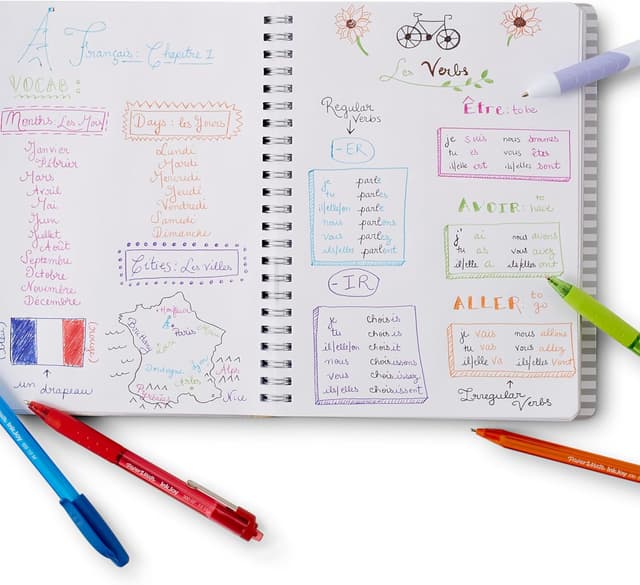 Français: Chapitre 1
VOCAB:
Months: Les Mois
Janvier
Février
Mars
Avril
Mai
Juin
Juillet
Août
Septembre
Octobre
Novembre
Décembre
Days: les Jours
Lundi
Mardi
Mercredi
Jeudi
Vendredi
Samedi
Dimanche
Cities: Les Villes
un drapeau
Paris
Dordogne
Lyon
Arles
Alpes
Nice
Les Verbs
Regular
Verbs
-ER
je parle
tu parles
il/elle/on parle
nous parlons
vous parlez
ils/elles parlent
-IR
je choisis
tu choisis
il/elle/on choisit
nous choisissons
vous choisissez
ils/elles choisissent
Être: to be
je suis nous sommes
tu es vous êtes
il/elle est ils/elles sont
AVOIR: to have
j' ai nous avons
tu as vous avez
il/elle a ils/elles ont
ALLER to go
je vais nous allons
tu vas vous allez
il/elle va ils/elles vont
Irregular
Verbs
PaperMate InkJoy
PaperMate InkJoy
PaperMate InkJoy